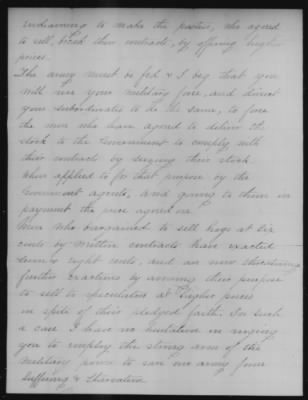 endeavoring to make the parties, who agreed
to sell, break their contracts, by offering higher
prices.
The army must be fed & I beg that you
will use your military force, and direct
your subordinates to do the same, to force
the men who have agreed to deliver the
stock to the Government to comply with
their contracts by seizing their stock
when applied to for that purpose by the
Government agents, and giving to them in
payment the price agreed on.
Men who bargained to sell hogs at six
cents by written contracts have exacted
seven & eight cents, and are now threatening
further exactions by avowing their purpose
to sell to speculators at higher prices
in spite of their pledged faith. In such
a case I have no hesitation in urging
you to employ the strong arm of the
military power to save our army from
suffering & starvation.